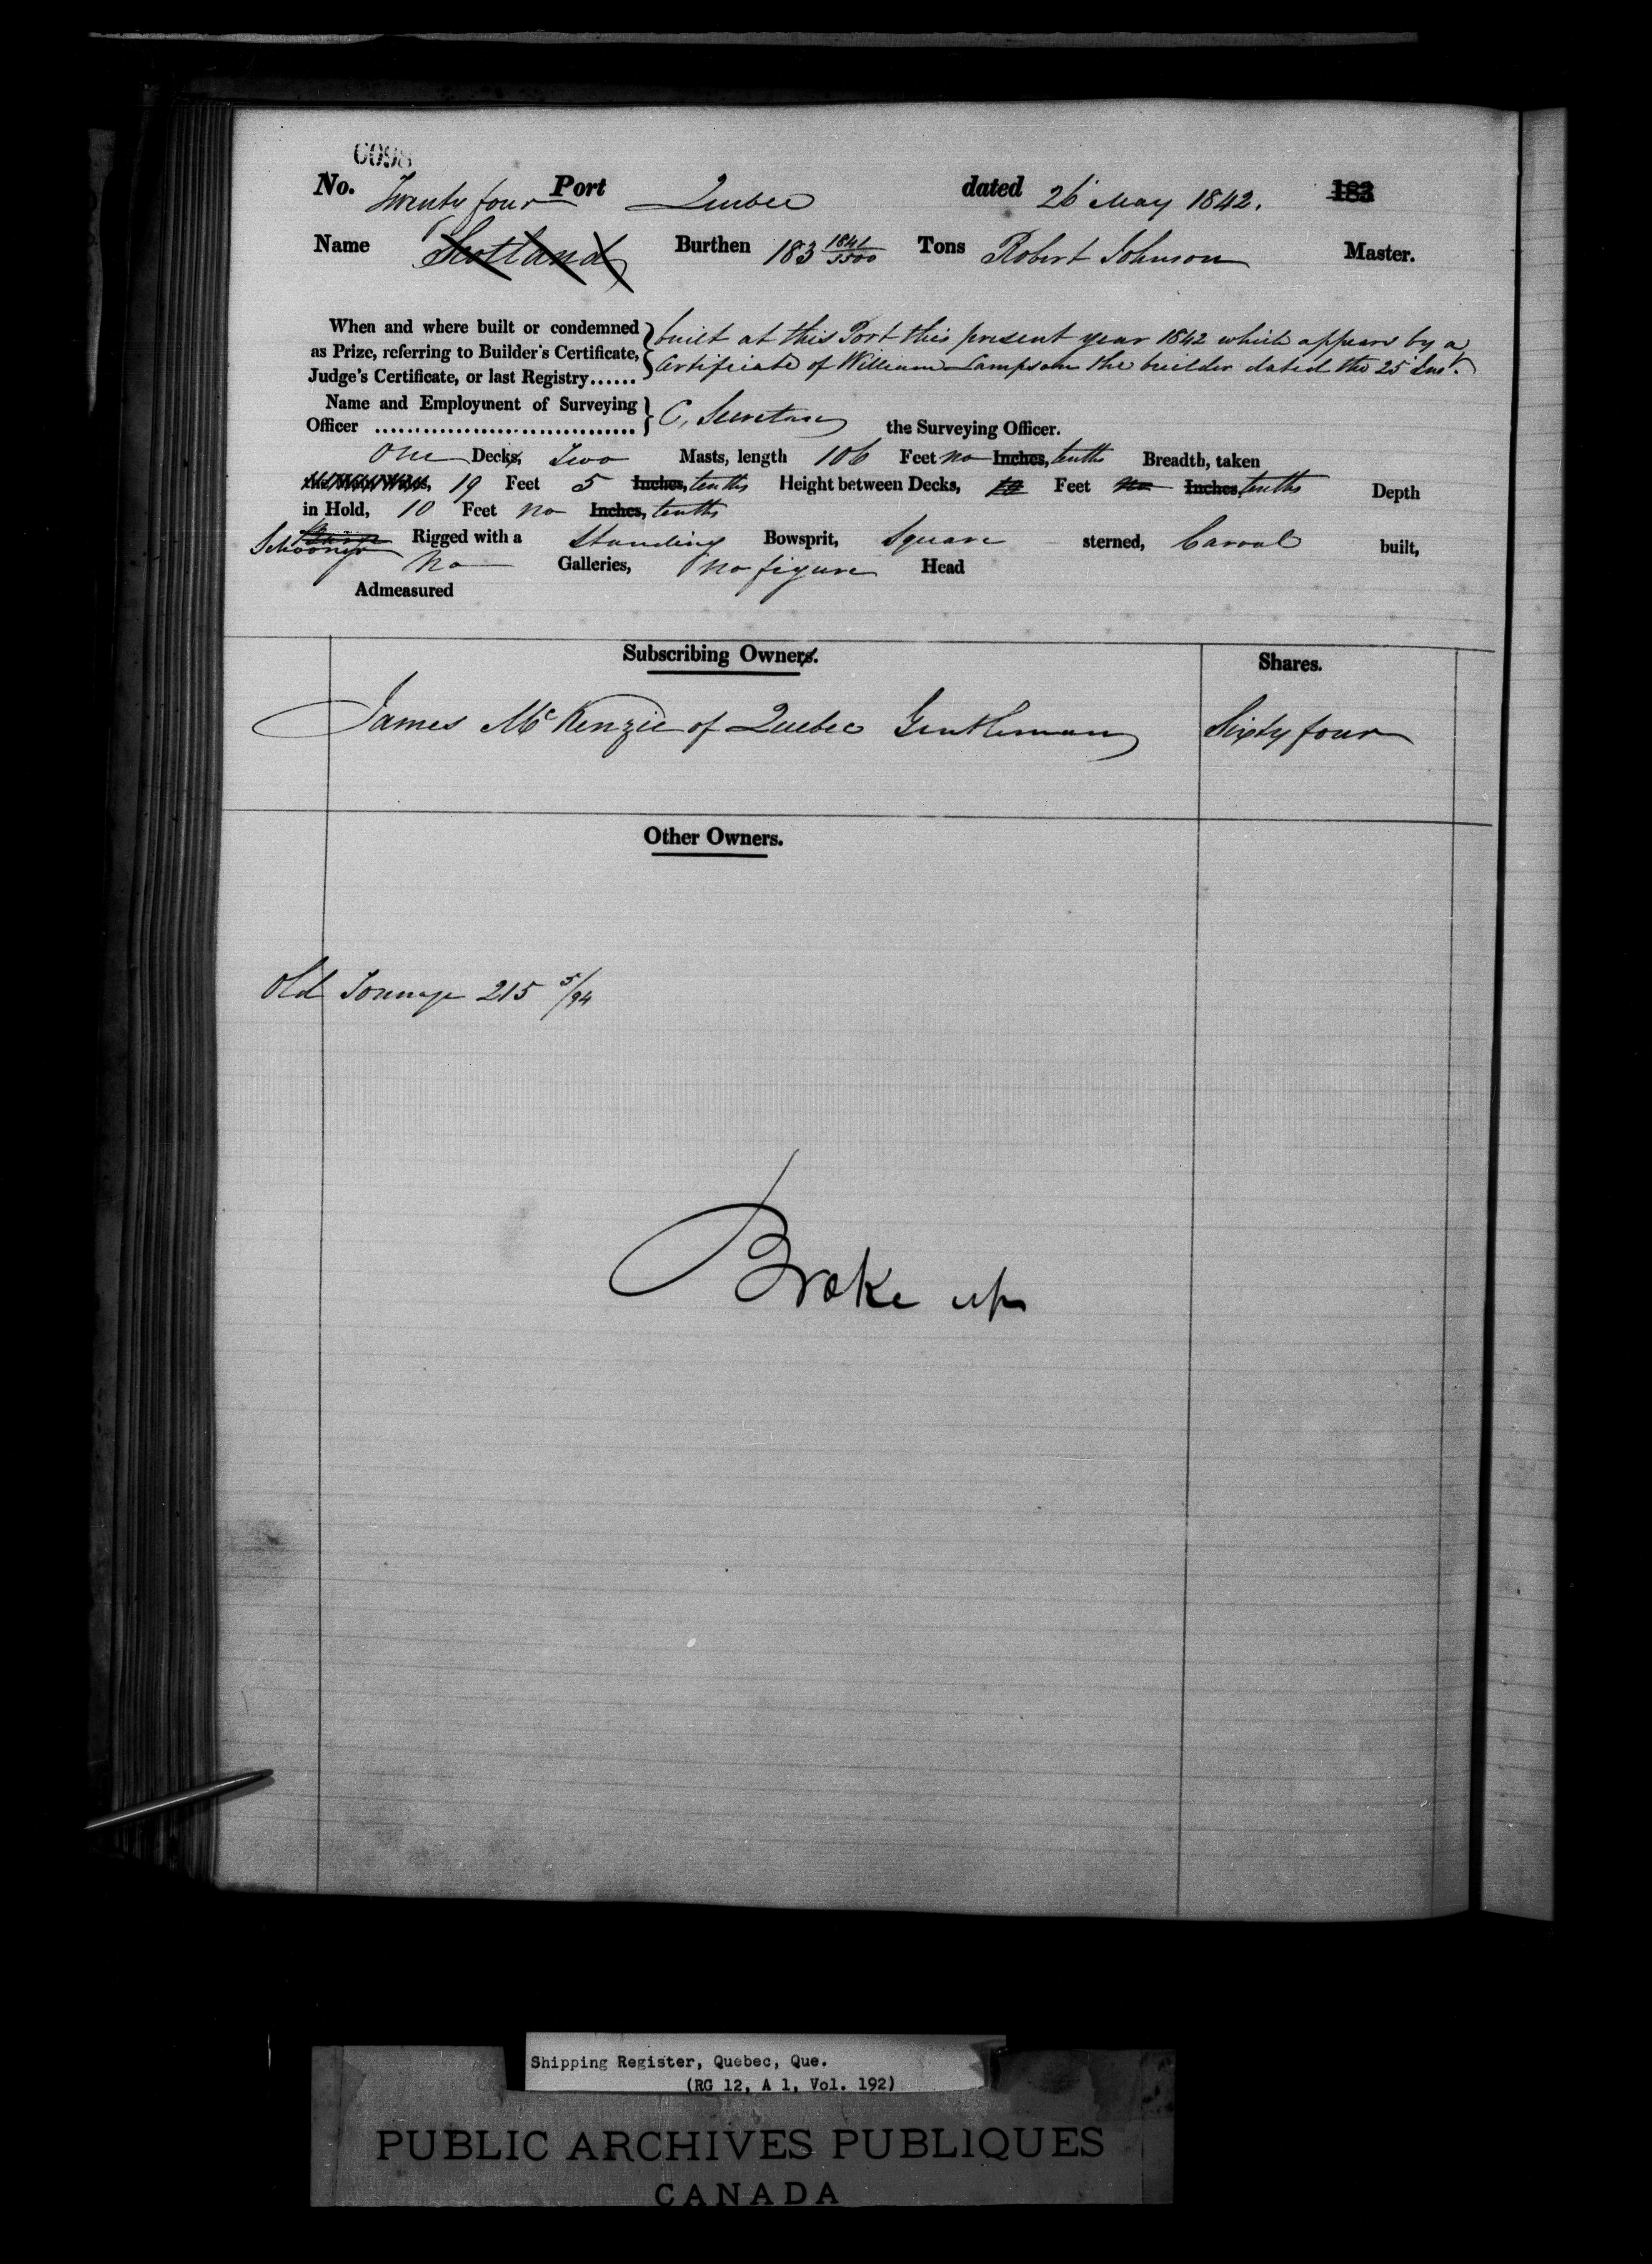 0098
No. Twenty four Port Quebec dated 26 May 1842. 183
Name Scotland Burthen 183 1841/3500 Tons Robert Johnson Master.
When and where built or condemned built at this Port this present year 1842 which appears by a
as Prize, referring to Builder's Certificate, Certificate of William Lampson the builder dated the 25 Inst.
Judge's Certificate, or last Registry......
Name and Employment of Surveying
Officer ................................ C, Secretan the Surveying Officer.
One Decks, Two Masts, length 106 Feet no Inches, tenths Breadth, taken
19 Feet 5 Inches, tenths Height between Decks, Feet no Inches tenths Depth
in Hold, 10 Feet no Inches, tenths
Schooner Rigged with a Standing Bowsprit, Square sterned, Carval built,
No Galleries, no figure Head
Admeasured
Subscribing Owners. Shares.
James McKenzie of Quebec Gentleman Sixty four
Other Owners.
Old Tonnage 215 5/94
Broke up
Shipping Register, Quebec, Que.
(RG 12, A 1, Vol. 192)
PUBLIC ARCHIVES PUBLIQUES
CANADA